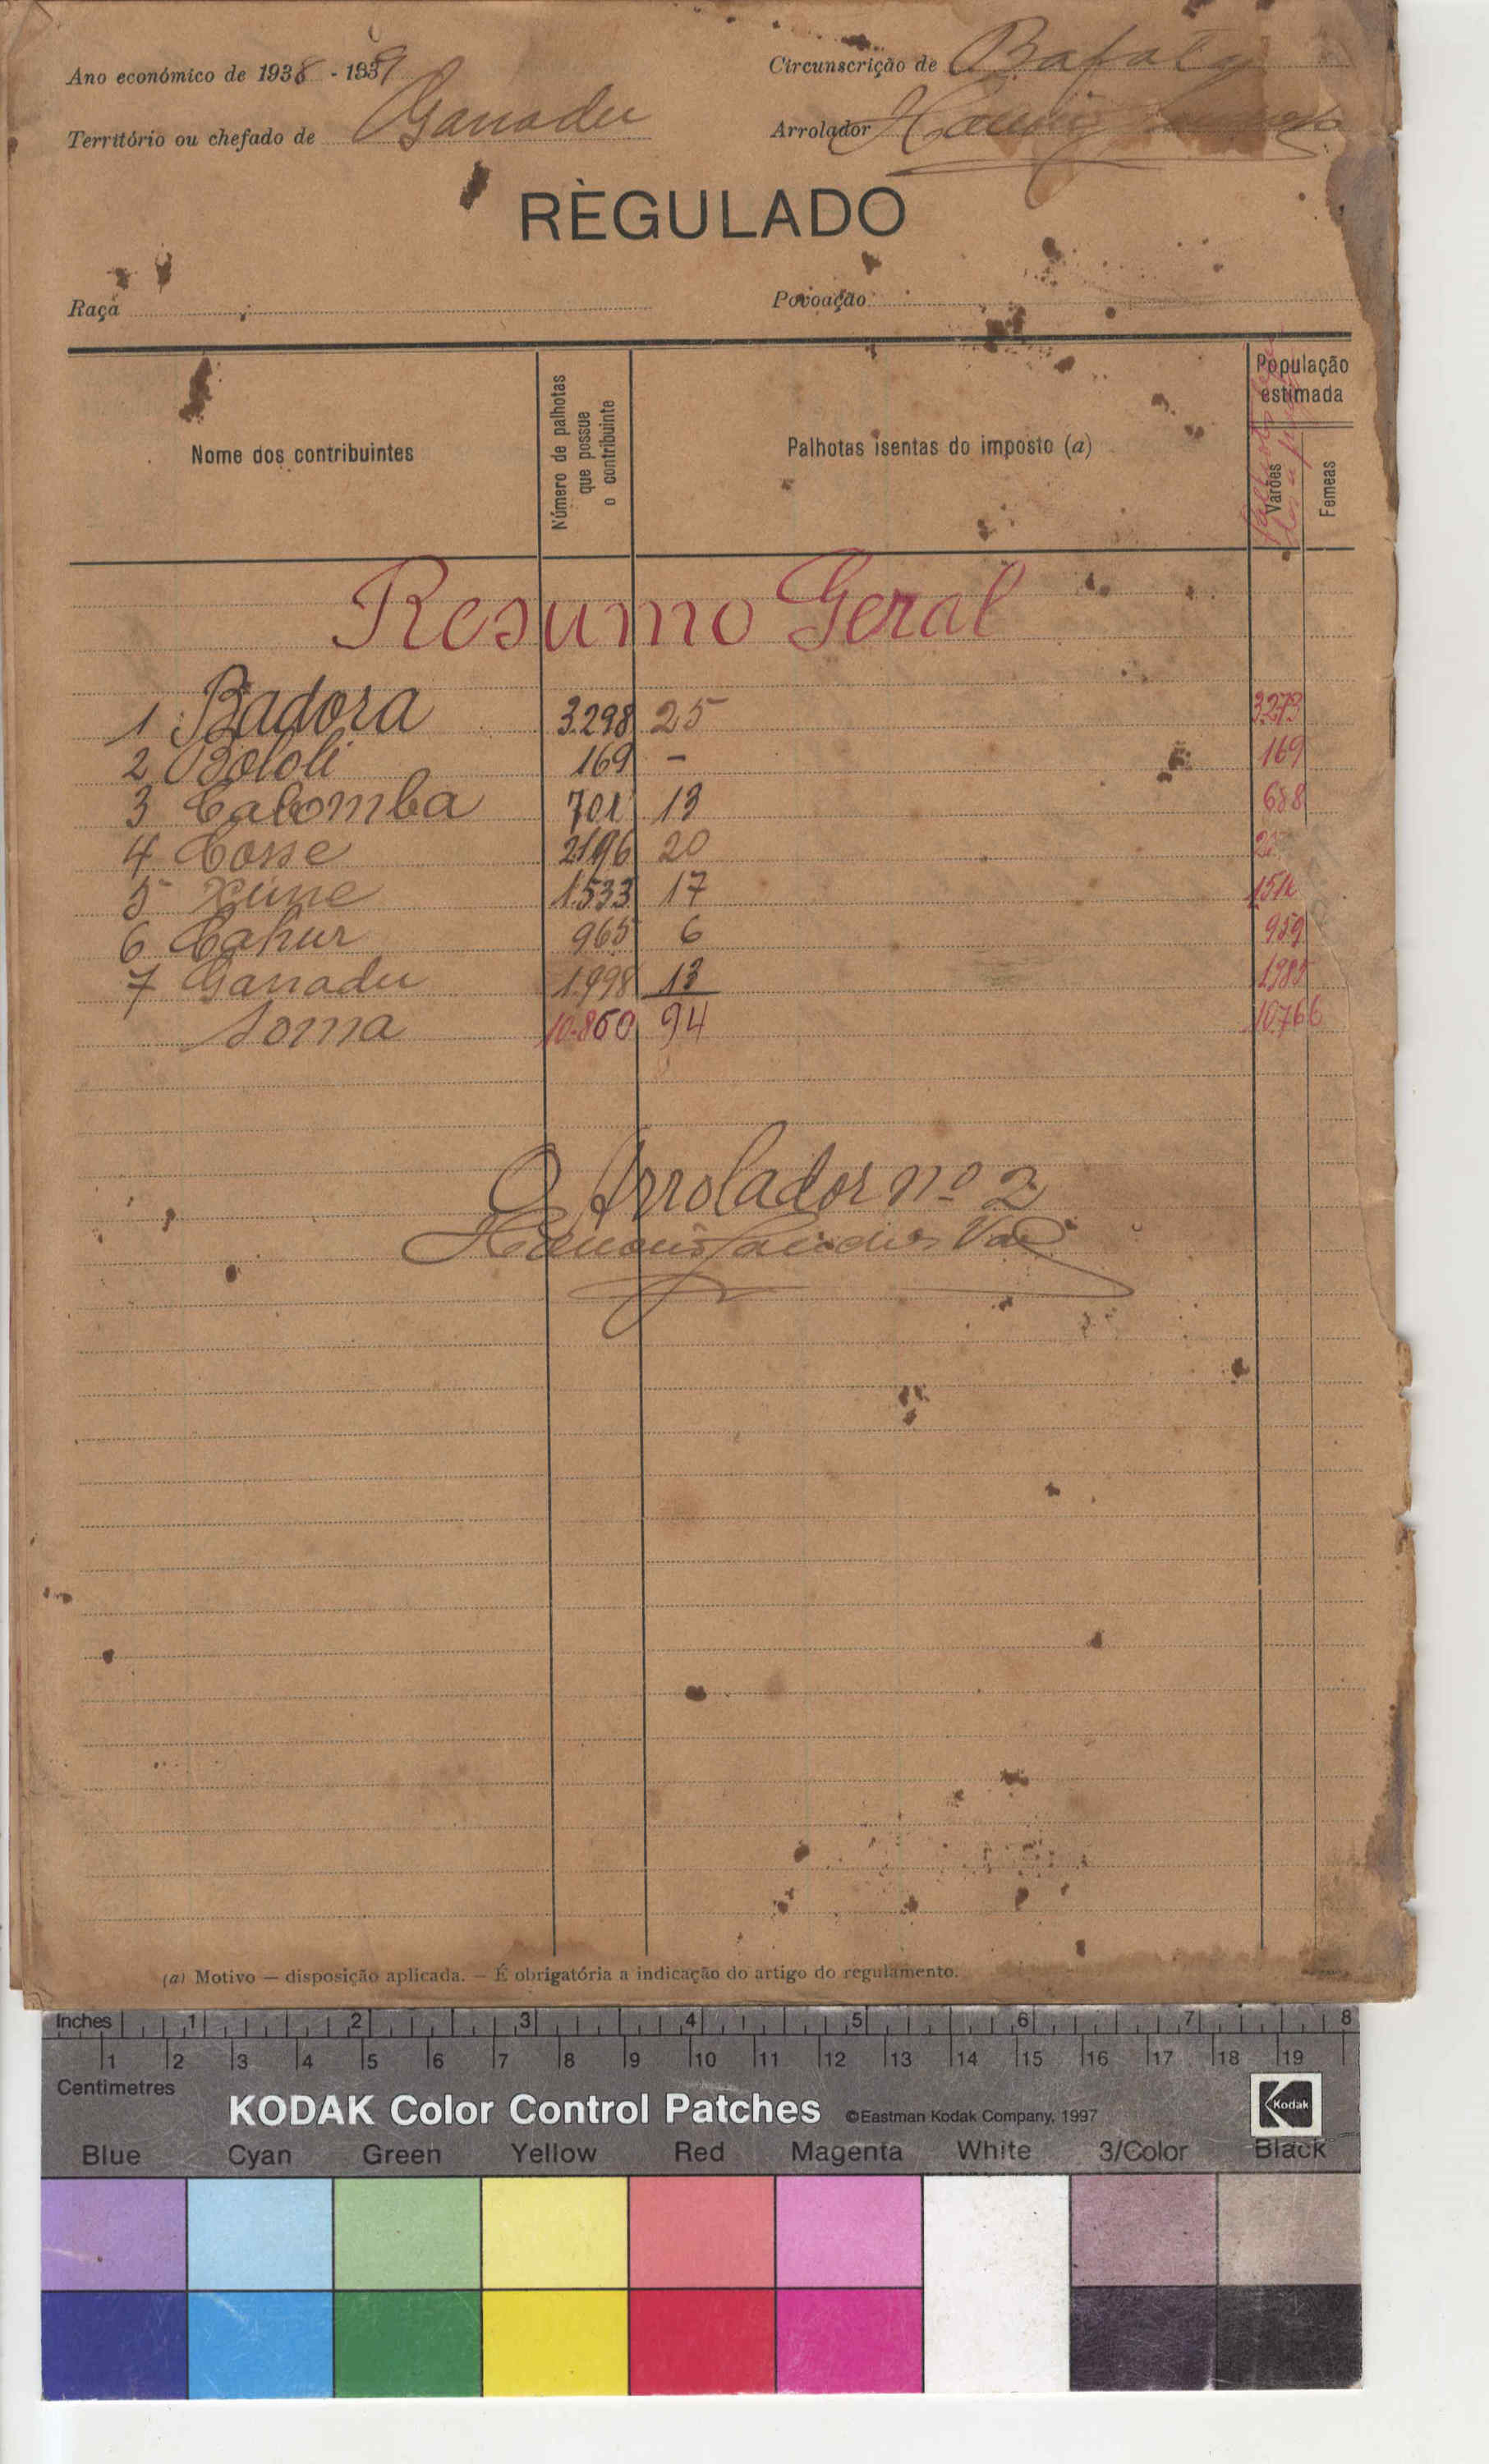 Ano económico de 1938 - 1939
Circunscrição de Bafata
Território ou chefado de Ganadu
Arrolador
RÈGULADO
Raça
Povoação
Nome dos contribuintes
Número de palhotas que possue o contribuinte
Palhotas isentas do imposto (a)
População estimada
Varões
Femeas
Resumo Geral
1 Badora 3.298 25 3.273
2 Bololi 169 - 169
3 Cabomba 701 13 688
4 Cosse 2196 20
5 Xime 1.533 17
6 Cahur 965 6 959
7 Ganadu 1.998 13 1985
Soma 10.860 94 10766
O Arrolador nº 2
(a) Motivo — disposição aplicada. — É obrigatória a indicação do artigo do regulamento.
Inches 1 2 3 4 5 6 7 8
1 2 3 4 5 6 7 8 9 10 11 12 13 14 15 16 17 18 19
Centimetres
KODAK Color Control Patches ©Eastman Kodak Company, 1997 Kodak
Blue Cyan Green Yellow Red Magenta White 3/Color Black